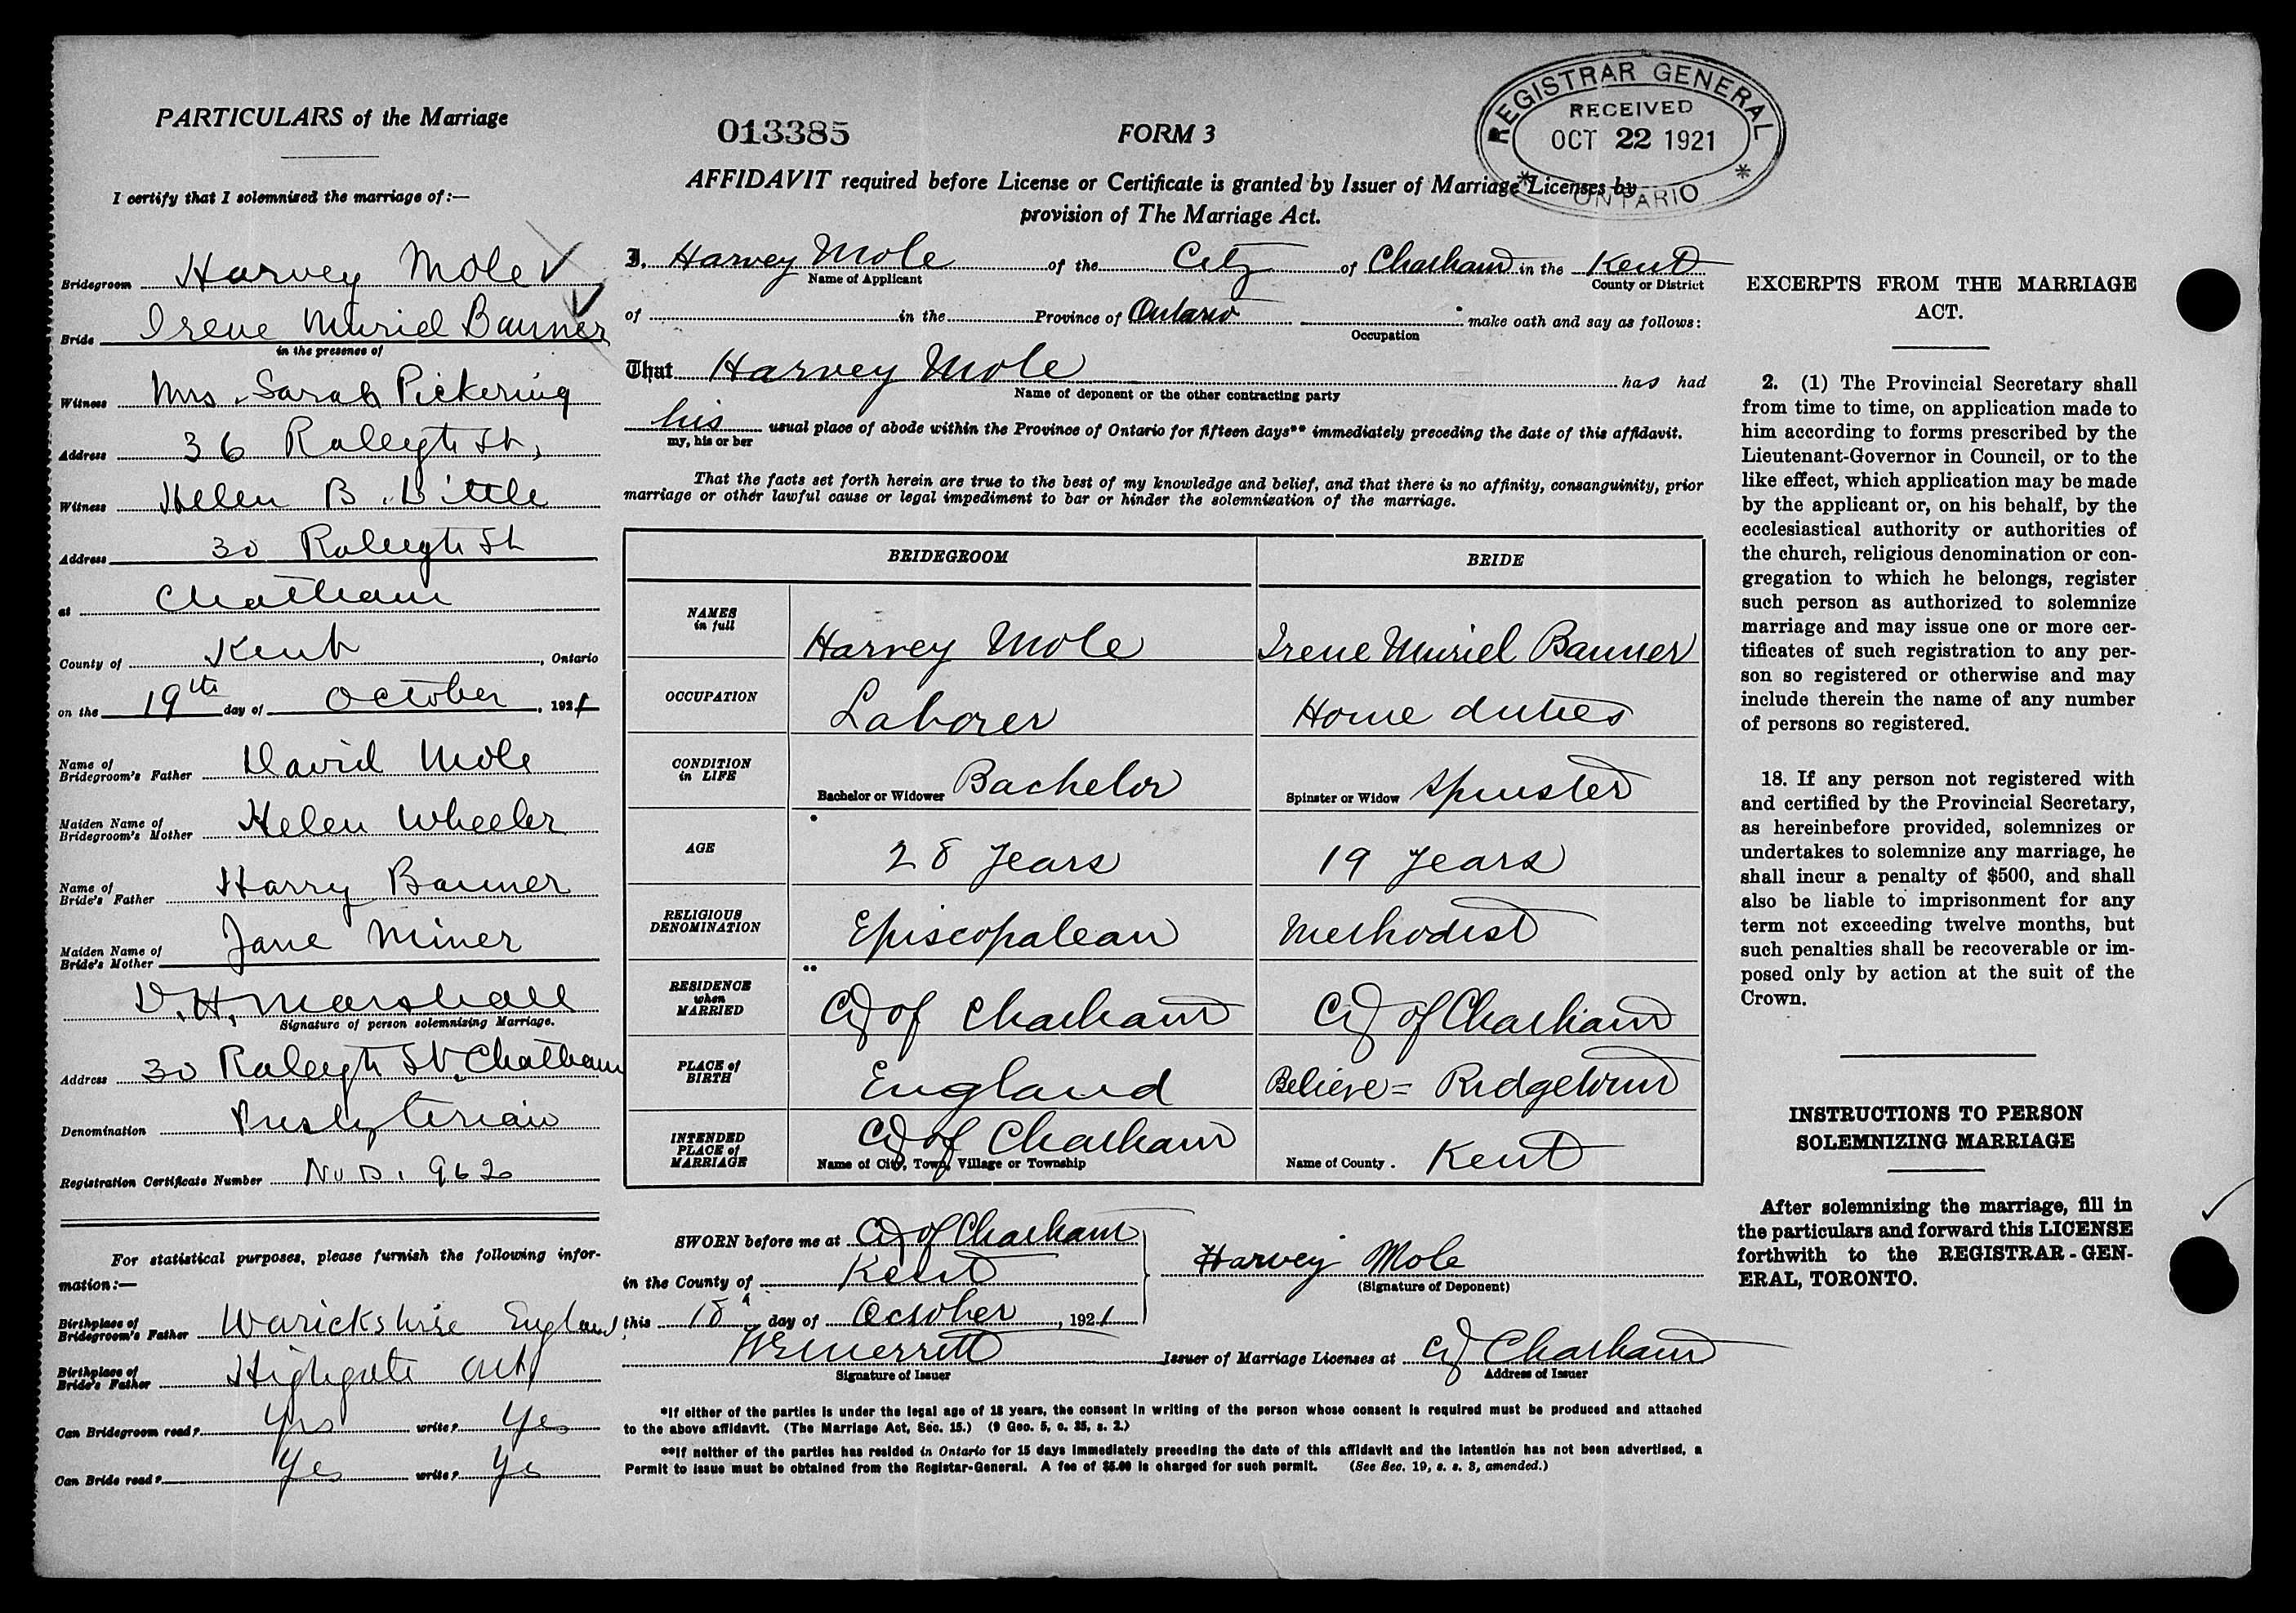 PARTICULARS of the Marriage
I certify that I solemnized the marriage of:—
Bridegroom Harvey Mole
Bride Irene Muriel Banner
in the presence of
Witness Mrs. Sarah Pickering
Address 36 Raleigh St,
Witness Helen B. Little
Address 30 Raleigh St
at Chatham
County of Kent, Ontario
on the 19th day of October, 1921
Name of
Bridegroom's Father David Mole
Maiden Name of
Bridegroom's Mother Helen Wheeler
Name of
Bride's Father Harry Banner
Maiden Name of
Bride's Mother Jane Miner
D. H. Marshall
Signature of person solemnizing Marriage.
Address 30 Raleigh St. Chatham
Denomination Presbyterian
Registration Certificate Number 962
For statistical purposes, please furnish the following infor-
mation:—
Birthplace of
Bridegroom's Father Warickshire England
Birthplace of
Bride's Father Highgate Ont
Can Bridegroom read? Yes write? Yes
Can Bride read? Yes write? Yes
013385
FORM 3
REGISTRAR GENERAL
RECEIVED
OCT 22 1921
* ONTARIO *
AFFIDAVIT required before License or Certificate is granted by Issuer of Marriage Licenses by
provision of The Marriage Act.
I, Harvey Mole of the City of Chatham in the Kent
Name of Applicant County or District
of in the Province of Ontario make oath and say as follows:
Occupation
That Harvey Mole has had
Name of deponent or the other contracting party
his usual place of abode within the Province of Ontario for fifteen days** immediately preceding the date of this affidavit.
my, his or her
That the facts set forth herein are true to the best of my knowledge and belief, and that there is no affinity, consanguinity, prior
marriage or other lawful cause or legal impediment to bar or hinder the solemnization of the marriage.
BRIDEGROOM BRIDE
NAMES
in full Harvey Mole Irene Muriel Banner
OCCUPATION Laborer Home duties
CONDITION
in LIFE Bachelor or Widower Bachelor Spinster or Widow Spinster
AGE 28 years 19 years
RELIGIOUS
DENOMINATION Episcopalean Methodist
RESIDENCE
when
MARRIED City of Chatham City of Chatham
PLACE of
BIRTH England Believe = Ridgetown
INTENDED
PLACE of
MARRIAGE City of Chatham Kent
Name of City, Town, Village or Township Name of County.
SWORN before me at City of Chatham
in the County of Kent
this 18 day of October, 1921
Harvey Mole
(Signature of Deponent)
W E Merritt Issuer of Marriage Licenses at City Chatham
Signature of Issuer Address of Issuer
*If either of the parties is under the legal age of 18 years, the consent in writing of the person whose consent is required must be produced and attached
to the above affidavit. (The Marriage Act, Sec. 15.) (9 Geo. 5, c. 35, s. 2.)
**If neither of the parties has resided in Ontario for 15 days immediately preceding the date of this affidavit and the intention has not been advertised, a
Permit to issue must be obtained from the Registar-General. A fee of $5.00 is charged for such permit. (See Sec. 19, s. s. 3, amended.)
EXCERPTS FROM THE MARRIAGE
ACT.
2. (1) The Provincial Secretary shall
from time to time, on application made to
him according to forms prescribed by the
Lieutenant-Governor in Council, or to the
like effect, which application may be made
by the applicant or, on his behalf, by the
ecclesiastical authority or authorities of
the church, religious denomination or con-
gregation to which he belongs, register
such person as authorized to solemnize
marriage and may issue one or more cer-
tificates of such registration to any per-
son so registered or otherwise and may
include therein the name of any number
of persons so registered.
18. If any person not registered with
and certified by the Provincial Secretary,
as hereinbefore provided, solemnizes or
undertakes to solemnize any marriage, he
shall incur a penalty of $500, and shall
also be liable to imprisonment for any
term not exceeding twelve months, but
such penalties shall be recoverable or im-
posed only by action at the suit of the
Crown.
INSTRUCTIONS TO PERSON
SOLEMNIZING MARRIAGE
After solemnizing the marriage, fill in
the particulars and forward this LICENSE
forthwith to the REGISTRAR-GEN-
ERAL, TORONTO.